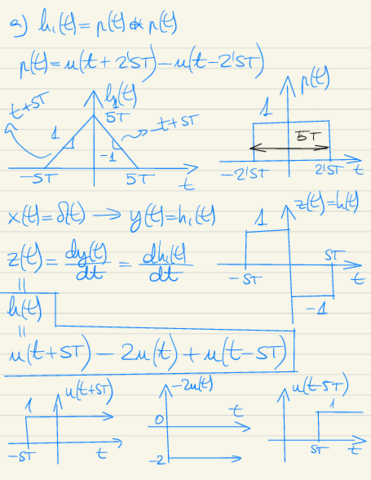 a) h₁(t)=p(t)*p(t)
p(t)=u(t+2'5T)-u(t-2'5T)
t+5T
h₁(t)
5T
t+5T
1
-1
-5T
5T
t
p(t)
1
5T
-2'5T
2'5T
t
x(t)=δ(t) → y(t)=h₁(t)
z(t)=h(t)
1
-5T
5T
t
-1
z(t)=dy(t)/dt=dh₁(t)/dt
=
h(t)
=
u(t+5T)-2u(t)+u(t-5T)
u(t+5T)
1
-5T
t
-2u(t)
0
t
-2
u(t-5T)
1
5T
t